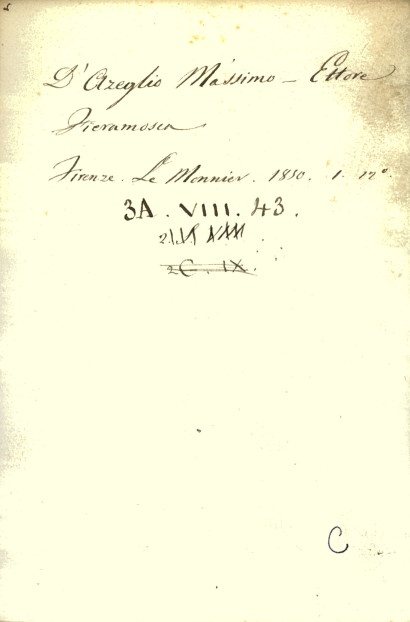 D'Azeglio Massimo – Ettore
Fieramosca
Firenze. Le Monnier. 1850. 1. 12°.
3A. VIII. 43.
2C. IX.
C